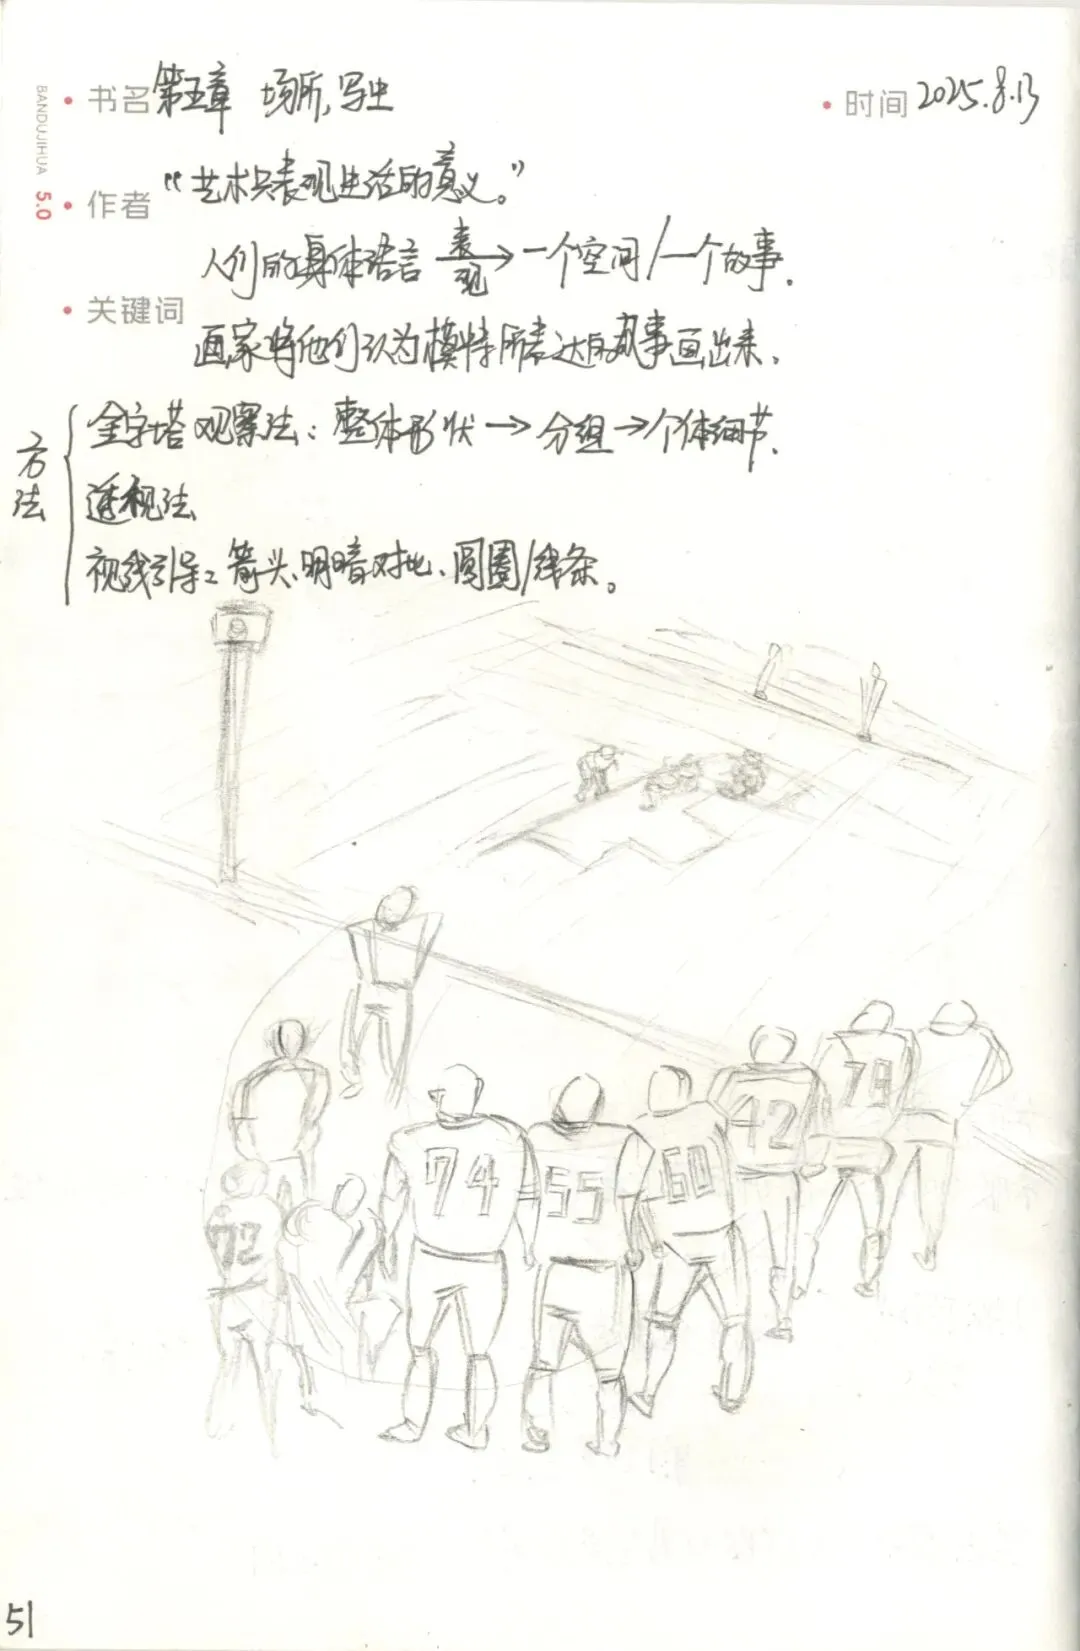 BANDUJIHUA 5.0
书名 第五章 场所,写史
时间 2025.8.13
作者 “艺术只表现生活的意义。”
人们的身体语言 表现→一个空间/一个故事.
关键词
画家将他们认为模特所表达的故事画出来.
方法
金字塔观察法:整体形状→分组→个体细节.
透视法
视线引导:箭头、明暗对比、圆圈/线条。
74 55 60 42 79
72
51